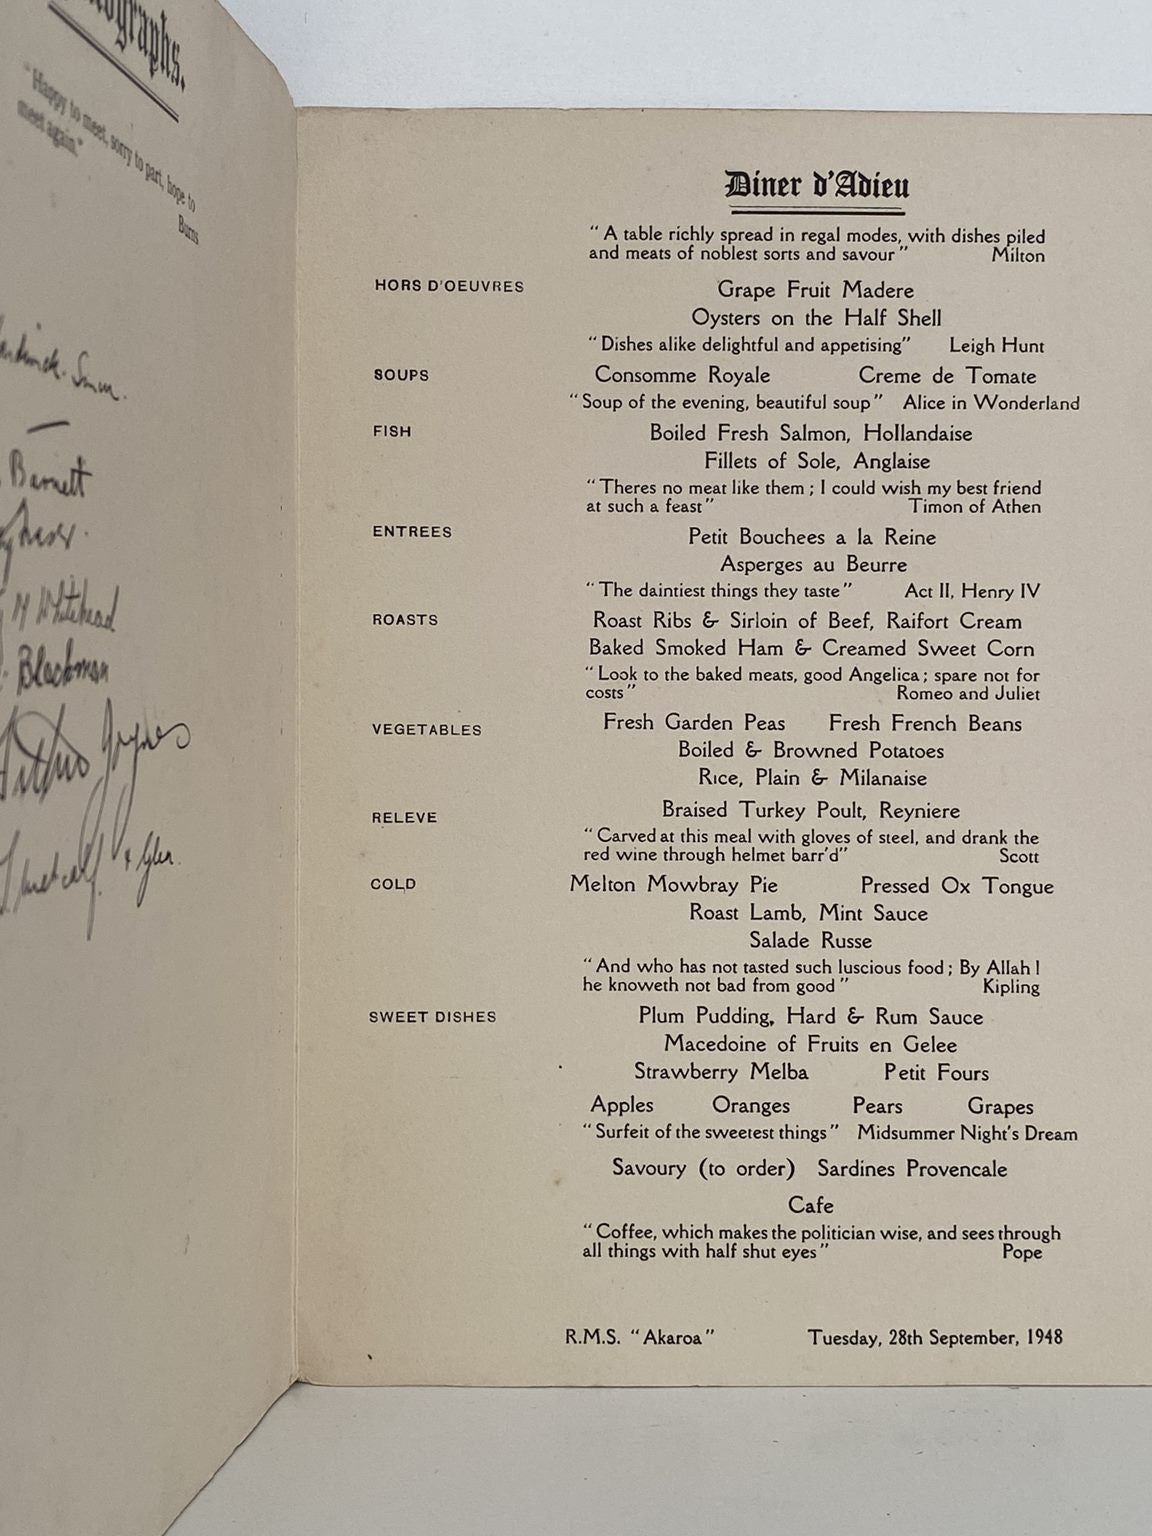 "Happy to meet, sorry to part, hope to
meet again."
Burns
Barnett
Whitehead
Blackman
Diner d'Adieu
"A table richly spread in regal modes, with dishes piled
and meats of noblest sorts and savour" Milton
HORS D'OEUVRES Grape Fruit Madere
Oysters on the Half Shell
"Dishes alike delightful and appetising" Leigh Hunt
SOUPS Consomme Royale Creme de Tomate
"Soup of the evening, beautiful soup" Alice in Wonderland
FISH Boiled Fresh Salmon, Hollandaise
Fillets of Sole, Anglaise
"Theres no meat like them; I could wish my best friend
at such a feast" Timon of Athen
ENTREES Petit Bouchees a la Reine
Asperges au Beurre
"The daintiest things they taste" Act II, Henry IV
ROASTS Roast Ribs & Sirloin of Beef, Raifort Cream
Baked Smoked Ham & Creamed Sweet Corn
"Look to the baked meats, good Angelica; spare not for
costs" Romeo and Juliet
VEGETABLES Fresh Garden Peas Fresh French Beans
Boiled & Browned Potatoes
Rice, Plain & Milanaise
RELEVE Braised Turkey Poult, Reyniere
"Carved at this meal with gloves of steel, and drank the
red wine through helmet barr'd" Scott
COLD Melton Mowbray Pie Pressed Ox Tongue
Roast Lamb, Mint Sauce
Salade Russe
"And who has not tasted such luscious food; By Allah!
he knoweth not bad from good" Kipling
SWEET DISHES Plum Pudding, Hard & Rum Sauce
Macedoine of Fruits en Gelee
Strawberry Melba Petit Fours
Apples Oranges Pears Grapes
"Surfeit of the sweetest things" Midsummer Night's Dream
Savoury (to order) Sardines Provencale
Cafe
"Coffee, which makes the politician wise, and sees through
all things with half shut eyes" Pope
R.M.S. "Akaroa" Tuesday, 28th September, 1948